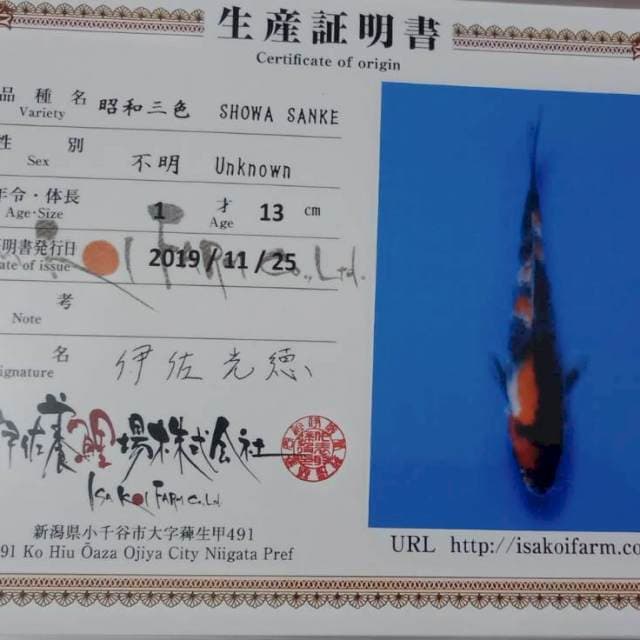 生産証明書
Certificate of origin
品種名 昭和三色 SHOWA SANKE
Variety
性別 不明 Unknown
Sex
年令・体長 1 才 13 cm
Age・Size Age
証明書発行日 2019/11/25
Date of issue
Koi Farm Co., Ltd.
考
Note
名 伊佐光徳
Signature
伊佐養鯉場株式会社
ISA KOI FARM CO.Ltd
新潟県小千谷市大字薭生甲491
491 Ko Hiu Ōaza Ojiya City Niigata Pref
URL http://isakoifarm.co